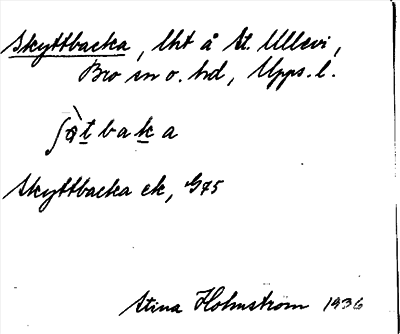 Skyttbacka, lht å St. Ullevi,
Bro sn o. hd, Upps. l.
tbaka
Skyttbacka ek, G75
Stina Holmström 1936